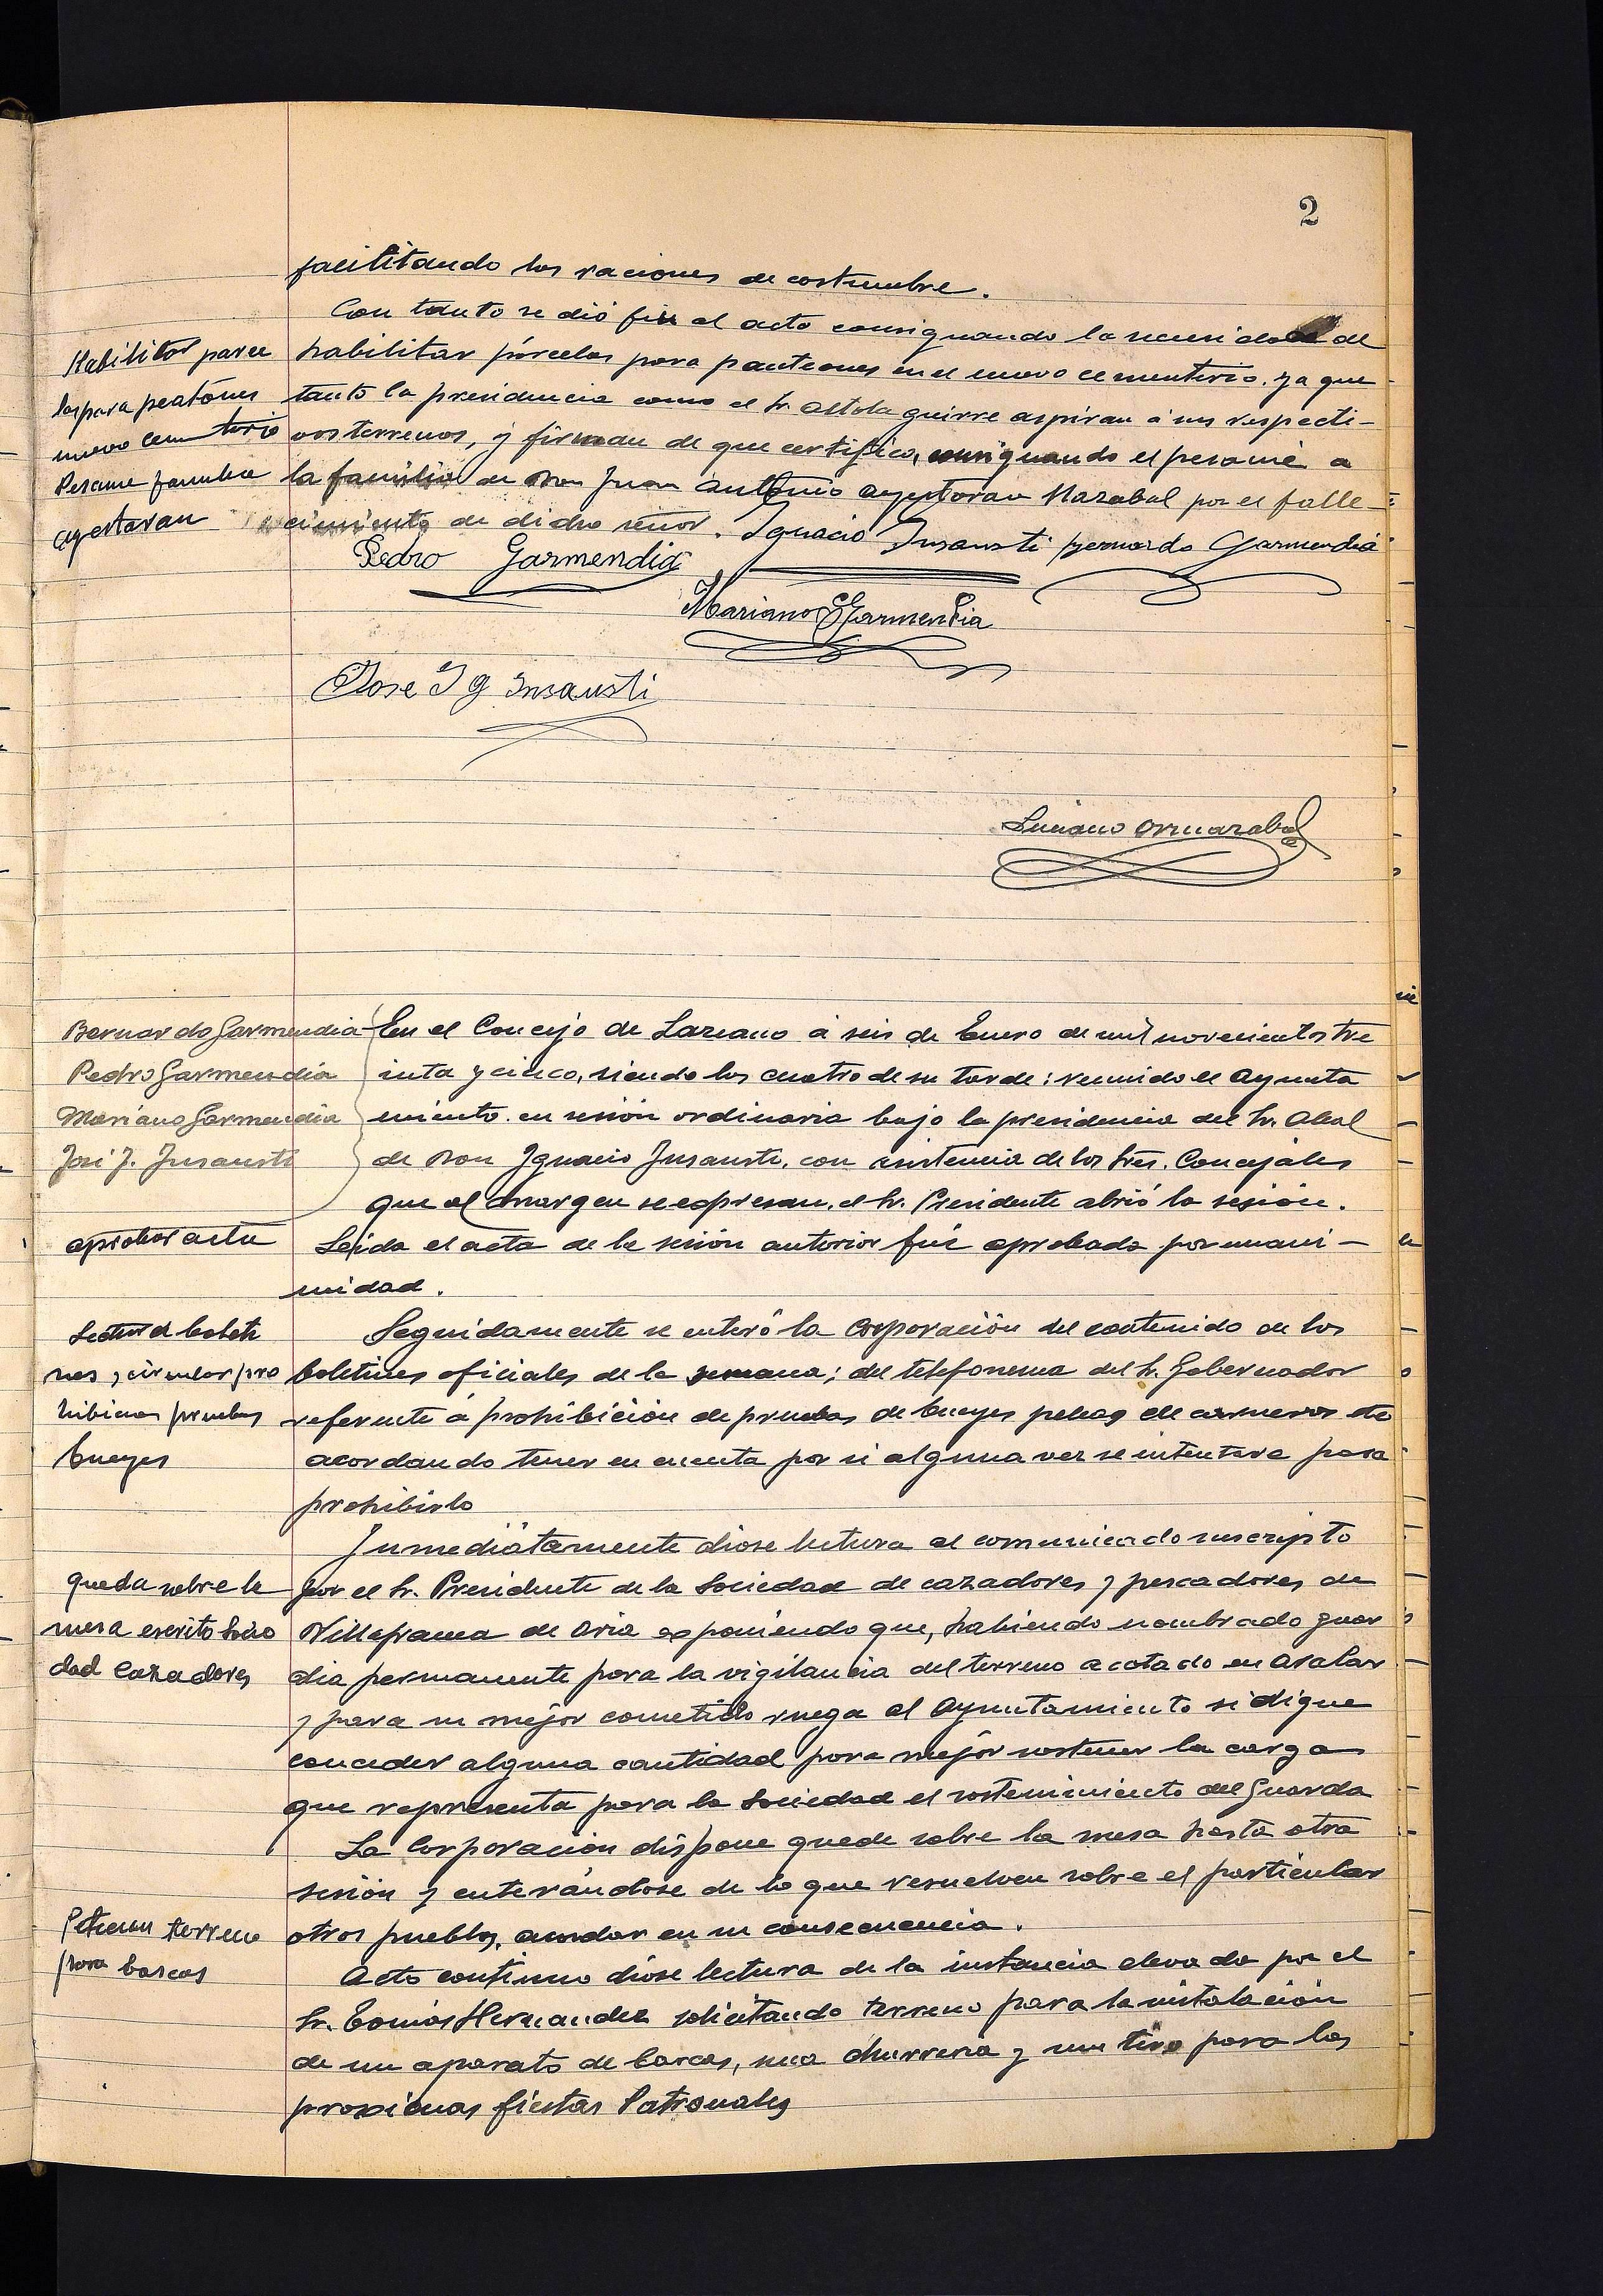 2
facilitando las raciones de costumbre.
Con tanto se dió fin al acto consignando la necesidad de
Habilitar parce
habilitar parcelas para panteones en el nuevo cementerio, ya que
las para peatónes
tanto la presidencia como el Sr. Altolaguirre aspiran á sus respecti-
nuevo cementerio
vos terrenos, y firman de que certifico, consignando el pesame a
Pesame familia
la familia de Don Juan Antonio Ayestaran Mazabal por el falle-
ayestaran
cimiento de dicho señor. Ignacio Insausti Bernardo Garmendia
Pedro Garmendia
Mariano Garmendia
Jose Ig Insausti
Luciano Ormazabal
Bernardo Garmendia
En el Concejo de Lazcano á seis de Enero de mil novecientos tre
Pedro Garmendia
inta y cinco, siendo las cuatro de su tarde: reunido el Ayunta
Mariano Garmendia
miento en sesión ordinaria bajo la presidencia del Sr. Alcal
José J. Insausti
de Don Ignacio Insausti, con asistencia de los Sres. Concejales
que al margen se expresan, el Sr. Presidente abrió la sesión.
aprobar acta
Leida el acta de la sesión anterior fué aprobada por unani-
midad.
Lectura de boleti
Seguidamente se enteró la Corporación del contenido de los
nes, circular pro
boletines oficiales de la semana; del telefonema del Sr. Gobernador
hibicion pruebas
referente á prohibición de pruebas de bueyes peleas de carneros etc
bueyes
acordando tener en cuenta por si alguna vez se intentara para
prohibirlo
Inmediátamente diose lectura al comunicado suscripto
queda sobre la
por el Sr. Presidente de la Sociedad de cazadores y pescadores de
mesa escrito Socie
Villafranca de Oria exponiendo que, habiendo nombrado guar
dad Cazadores
dia permanente para la vigilancia del terreno acotado en Aralar
y para su mejor cometido ruega al Ayuntamiento si digne
conceder alguna cantidad para mejor sostener la carga
que representa para la Sociedad el sostenimiento del Guarda
La Corporación dispone quede sobre la mesa hasta otra
sesión y enterándose de lo que resuelven sobre el particular
Peticion terreno
otros pueblos, acordar en su consecuencia.
para barcas
Acto continuo diose lectura de la instancia elevada por el
Sr. Tomás Hernandez solicitando terreno para la instalación
de un aparato de barcas, una churrería y un tiro para las
proximas fiestas Patronales